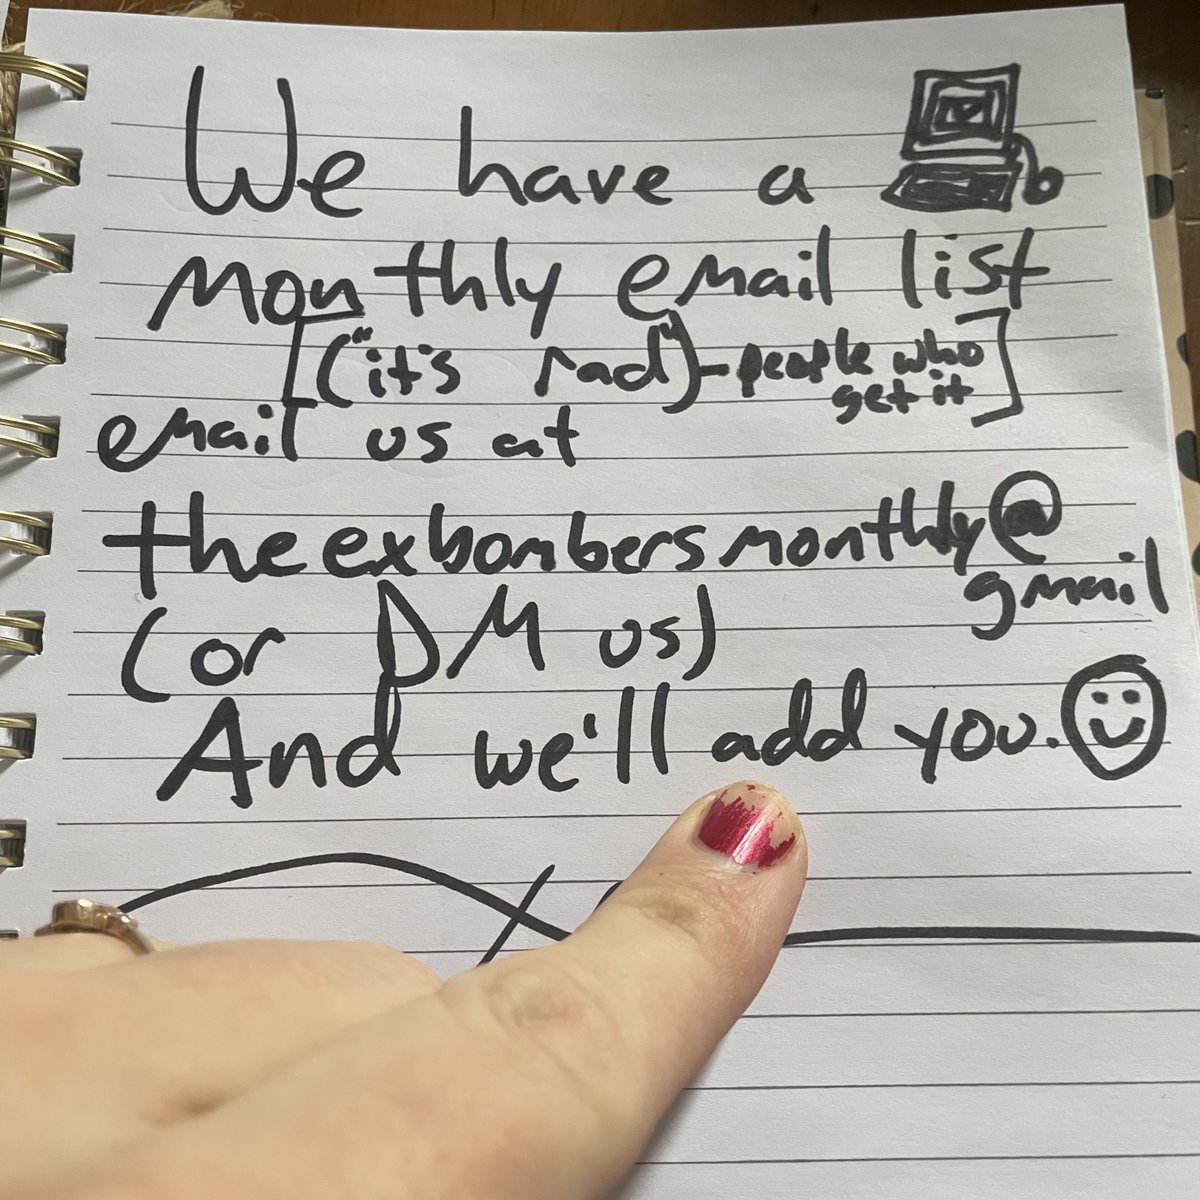 We have a
monthly email list
[("it's rad") - people who
get it]
email us at
theexbombersmonthly@
gmail
(or DM us)
And we'll add you.